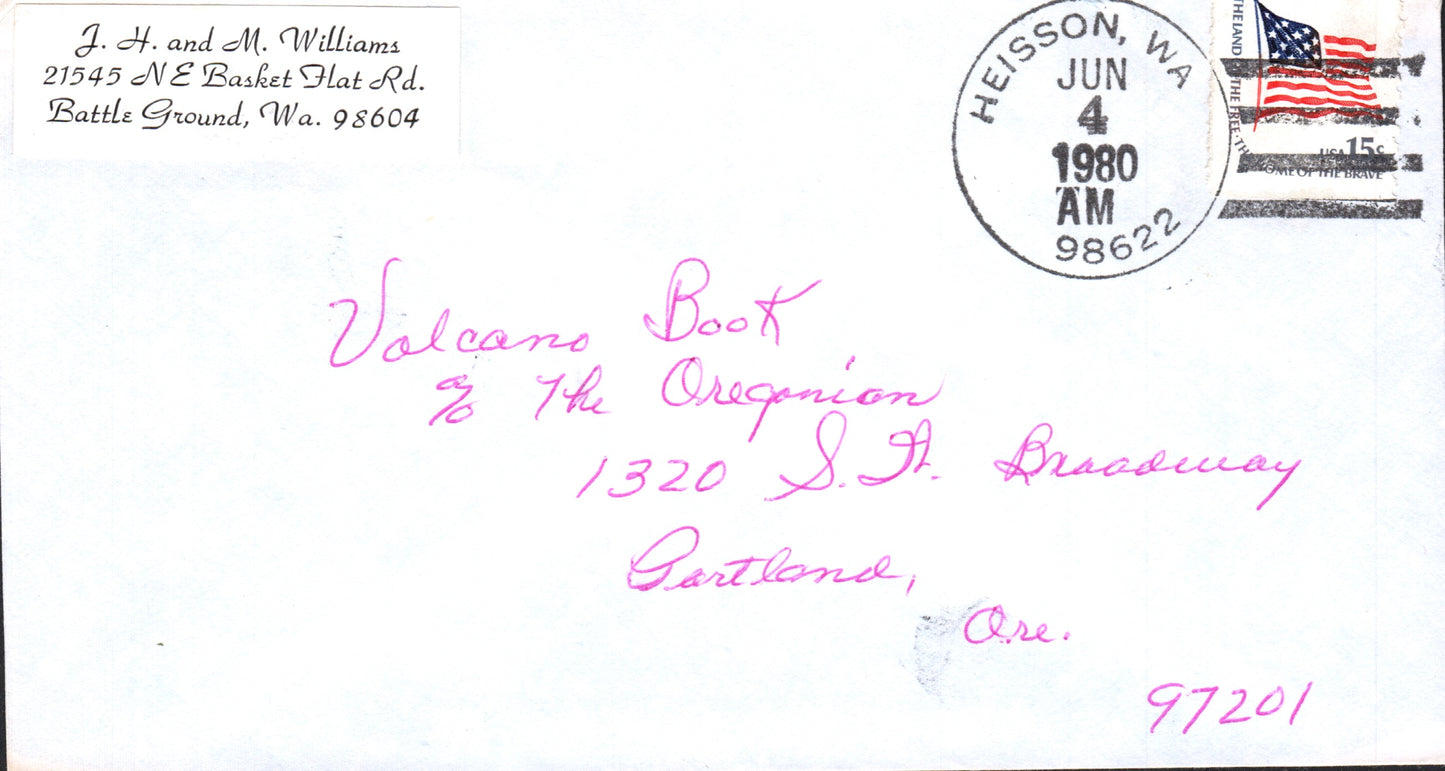 J. H. and M. Williams
21545 N E Basket Flat Rd.
Battle Ground, Wa. 98604
HEISSON, WA
JUN
4
1980
AM
98622
THE LAND OF THE FREE · TH
USA 15c
OME OF THE BRAVE
Volcano Book
c/o The Oregonian
1320 S. W. Broadway
Portland,
Ore.
97201